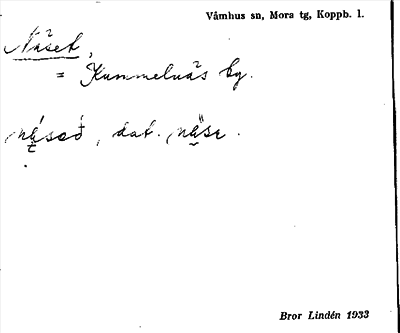 Våmhus sn, Mora tg, Koppb. l.
Näset,
= Kummelnäs by.
dat.
Bror Lindén 1933